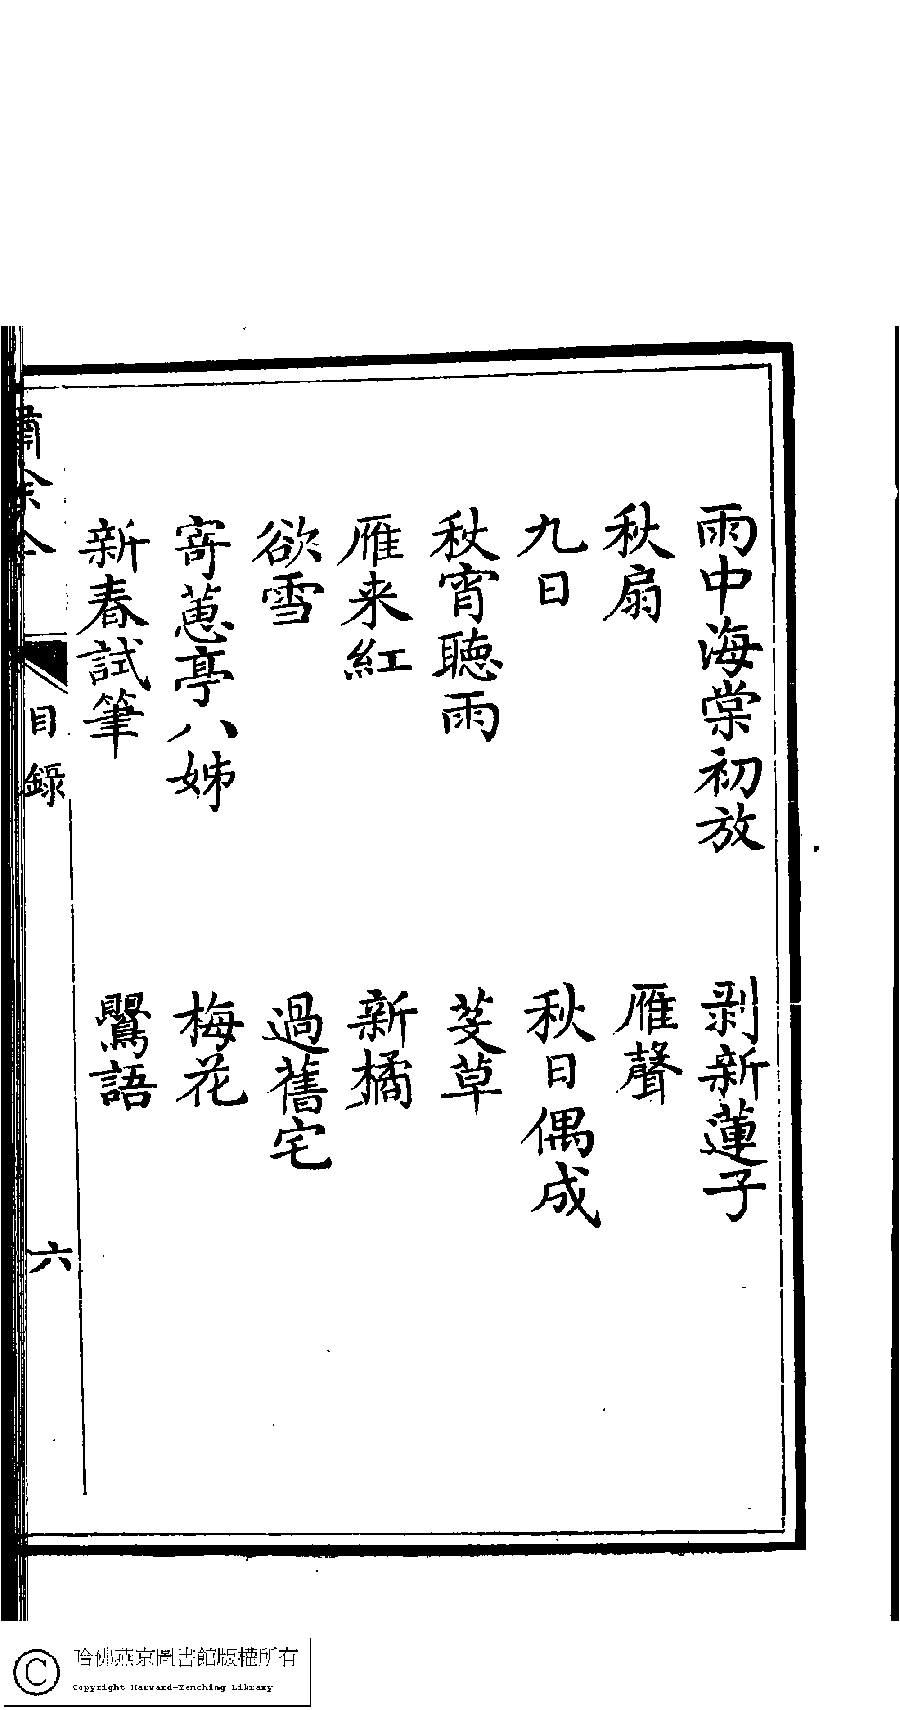 雨中海棠初放 剥新蓮子
秋扇 雁聲
九日 秋日偶成
秋宵聽雨 芟草
雁来紅 新橘
欲雪 過舊宅
寄蕙亭八姊 梅花
新春試筆 鸎語
目錄 六
哈佛燕京圖書館版權所有
Copyright Harvard-Yenching Library